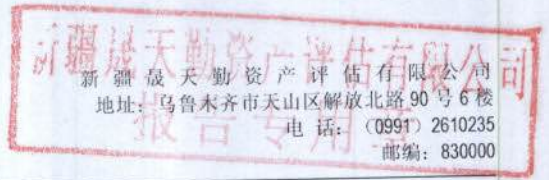 新疆晟天勤资产评估有限公司
报告专用
新疆晟天勤资产评估有限公司
地址：乌鲁木齐市天山区解放北路90号6楼
电 话：（0991）2610235
邮编：830000